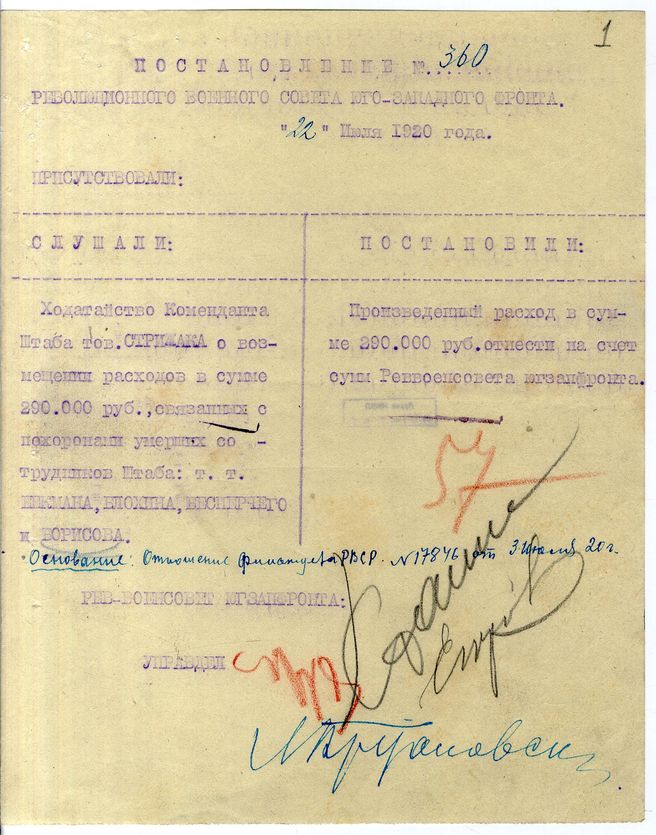 1
ПОСТАНОВЛЕНИЕ №. 360
РЕВОЛЮЦИОННОГО ВОЕННОГО СОВЕТА ЮГО-ЗАПАДНОГО ФРОНТА.
"22" Июля 1920 года.
ПРИСУТСТВОВАЛИ:
СЛУШАЛИ:
Ходатайство Коменданта
Штаба тов. СТРИЖАКА о воз-
мещении расходов в сумме
290.000 руб., связанных с
похоронами умерших со -
трудников Штаба: т. т.
БЛОХИНА,
и БОРИСОВА.
ПОСТАНОВИЛИ:
Произведенный расход в сум-
ме 290.000 руб. отнести на счет
сумм Реввоенсовета югзапфронта.
57
Основание: Отношение РВСР. N17846 от 3 Июля 20 г.
РЕВ-ВОЕНСОВЕТ ЮГЗАПФРОНТА:
УПРАВДЕЛ